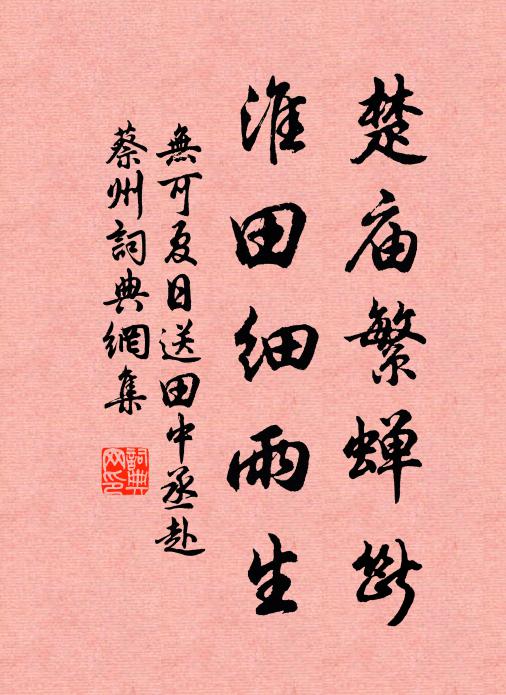 楚庙繁蝉断
淮田细雨生
無可夏日送田中丞赴
蔡州詞典網集
詞典
网印